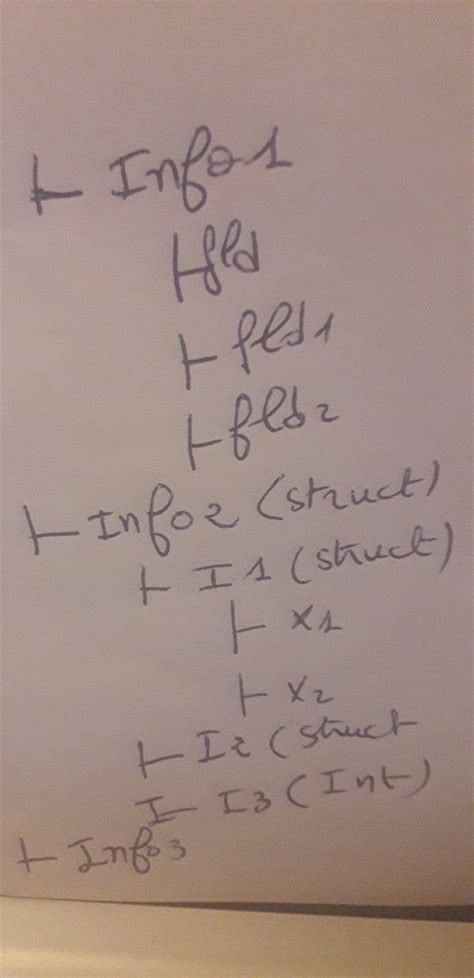 Info1
fld
fld1
fld2
Info2 (struct)
I1 (struct)
x1
x2
I2 (struct
I3 (Int)
Info3